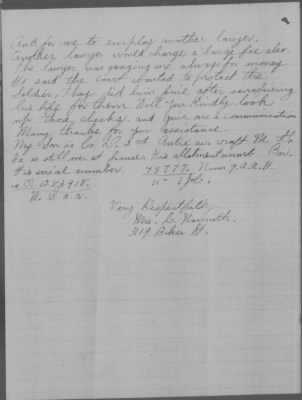 And for me to employ another lawyer.
Another lawyer would charge a large fee also.
The lawyer was ganging me, always for money
He said the court wanted to protect the
soldier. They did him evil after sacrificing
his life for them. Will you kindly look
up those checks, and give me a communication
Many thanks for your assistance.
My Son is Co D. 3rd Antie air craft M.
He is still over at france His allotment
His serial number.
W. D. a. n.
Very Respectfully
Mrs. L.
309 St.